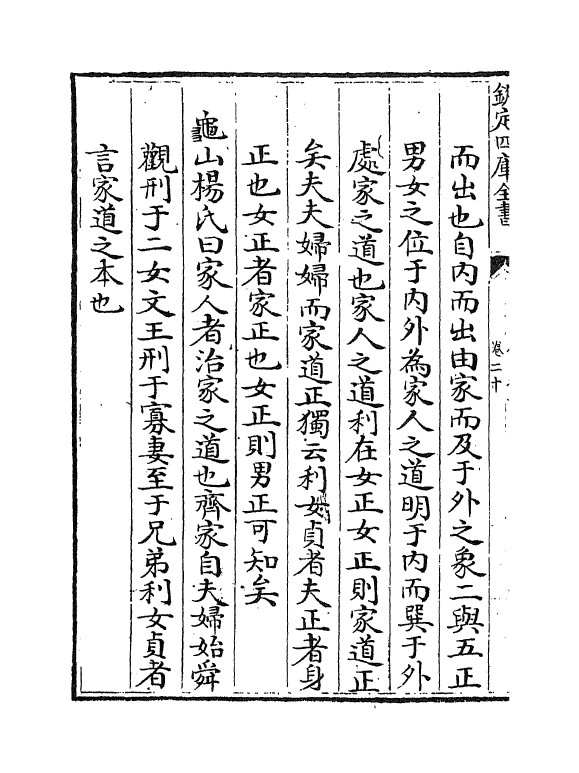 欽定四庫全書
卷二十
而出也自内而出由家而及于外之象二與五正
男女之位于内外為家人之道明于内而巽于外
處家之道也家人之道利在女正女正則家道正
矣夫夫婦婦而家道正獨云利女貞者夫正者身
正也女正者家正也女正則男正可知矣
龜山楊氏曰家人者治家之道也齊家自夫婦始舜
觀刑于二女文王刑于寡妻至于兄弟利女貞者
言家道之本也